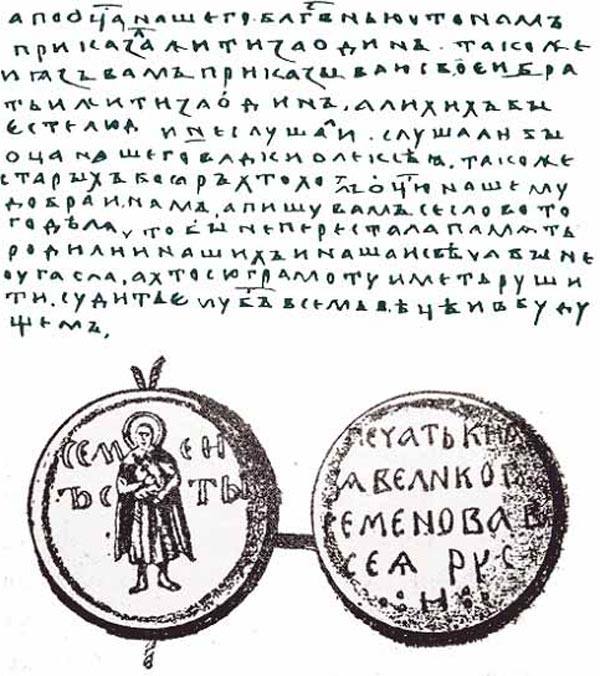 апооцѧнашегоблгⷭ҇внью
приказалжитизаодинъ. такоже
иꙗзъвамъприказываюсвоеибра
тьижитизаодинъ. алихихъбы
естелюд инеслушали. слушалибы
оцанашеговлдкиолексѣꙗ. такоже
старыхъбоꙗръхтохо оцюнашему
добраинамъ. апишувамъсесловото
годѣлѧ, чтобынепересталапамѧть
родилиинашихъинашаисвѣчабыне
оугасла, ахтосюграмотуиметьруши
ти. судитьемубъвсемьвѣцѣивбуду
щемъ,
СЕМЕНЪ СТЫ
ПЕЧАТЬ КНѦ
ѦВЕЛИКОГ
СЕМЕНОВАВ
СЕѦ РУС
И